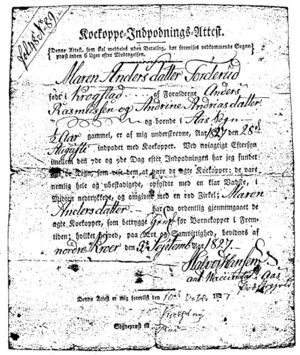 Kockoppe-Indpodnings-Attest.
(Denne Attest, som skal meddeles uden Betaling, bør forevises vedkommende Sogne-
præst inden 6 Uger efter Meddelelsen.
Maren Anders datter Forderud
født i Krogstad, af Forældrene Anders
Rasmussen og Andrine Andrias datter
og boende i Aas Sogn,
Aar gammel, er af mig underskrevne, Aar 1827 den 25de
Augusti indpodet med Kockopper. Ved nøiagtig Eftersyn
imellem den 7de og 9de Dag efter Indpodningen har jeg fundet
de ægte Kockopper; de vare
nemlig hele og ubeskadigede, opfyldte med en klar Vædske,
Midten nedtrykte, og omgivne med en rød Zirkel; Maren
Anders datter har da ordentlig gjennemgaaet de
ægte Kockopper, som betrygge hende for Børnekopper i Frem-
tiden; hvilket herved, paa Ære og Samvittighed, bevidnes af
nordre Kroer den 4de Septembr 1827.
Halvor Hansen
Denne Attest er mig forevist den 10de October 1827
Sognepræst til